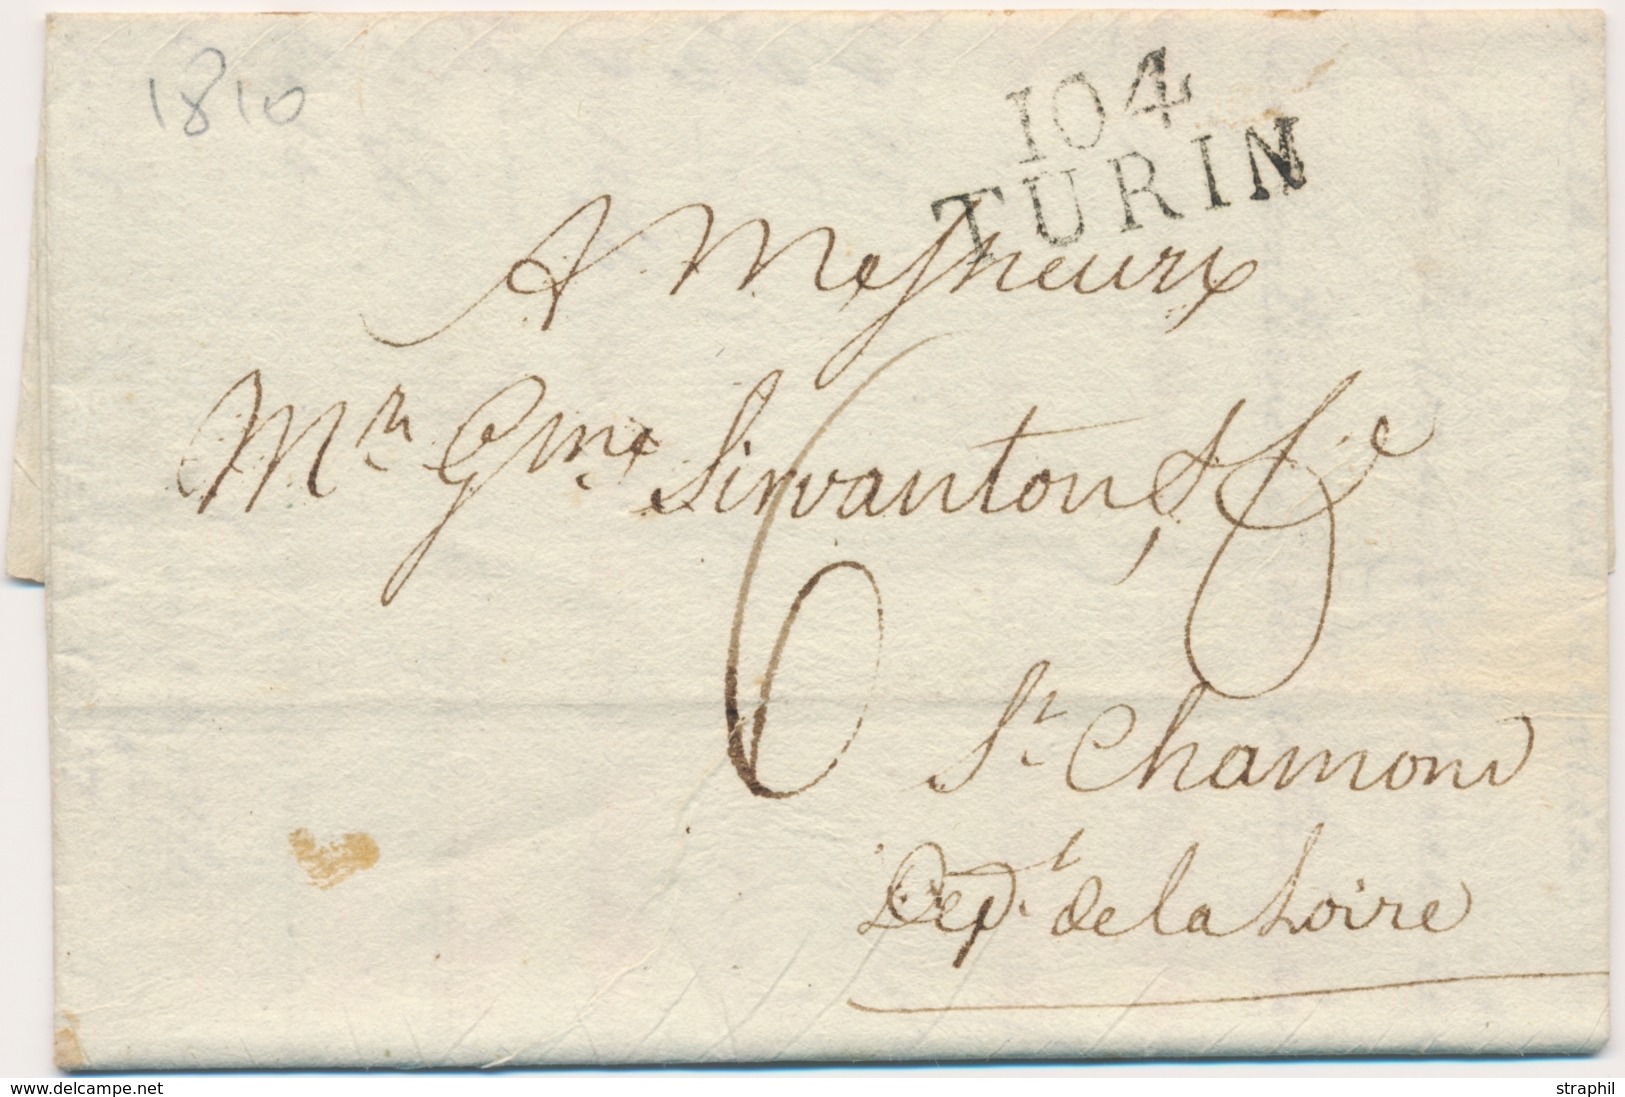 1810
104
TURIN
A Messieurs
Mrs Gme Sirvanton, & Cie
6
St Chamond
Dept de la Loire
www.delcampe.net
straphil